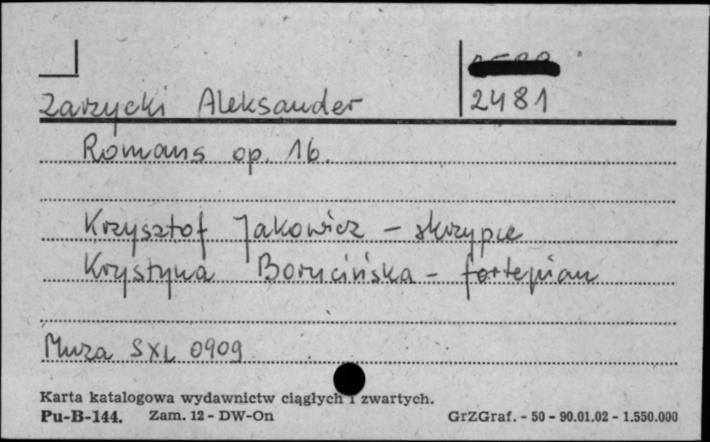 Zarzycki Aleksander
2481
Romans op. 16.
Krzysztof Jakowicz – skrzypce
Krystyna Borucińska – fortepian
Muza SXL 0909
Karta katalogowa wydawnictw ciągłych i zwartych.
Pu-B-144. Zam. 12 - DW-On GrZGraf. - 50 - 90.01.02 - 1.550.000